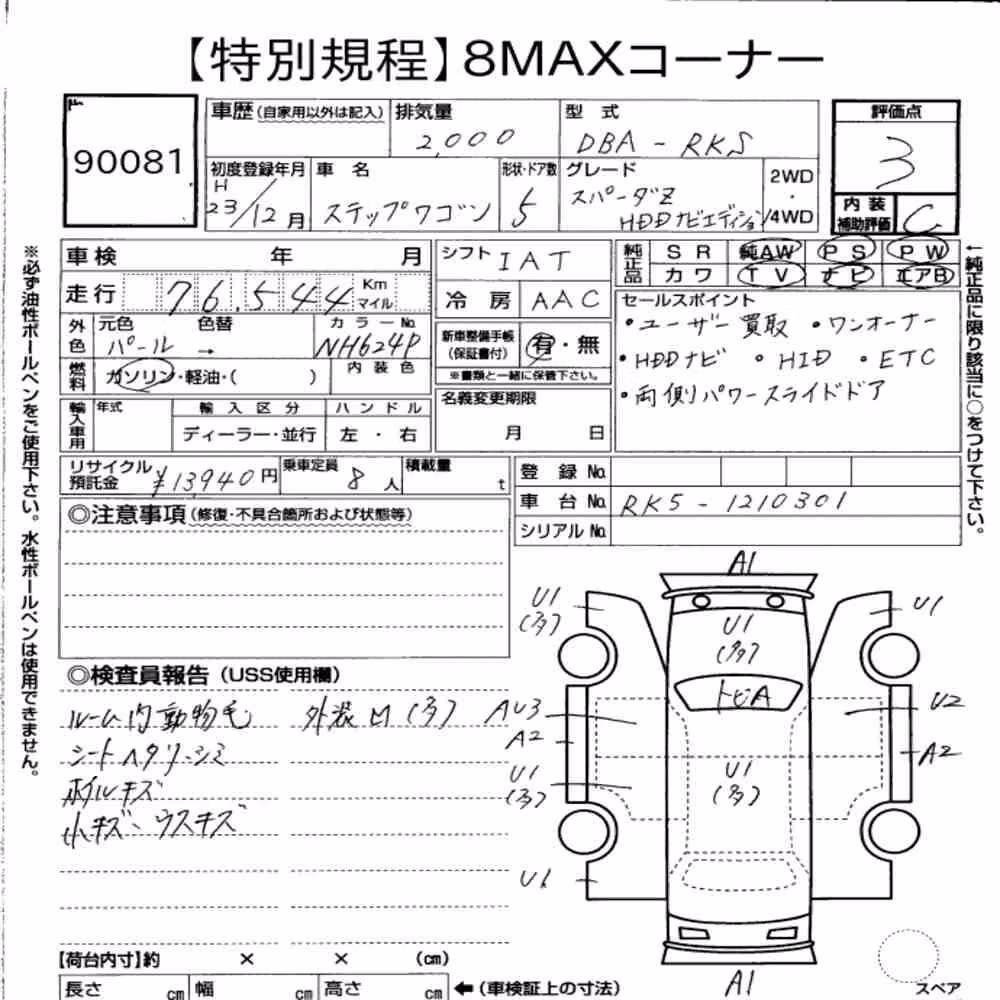 【特別規程】8MAXコーナー
90081
車歴(自家用以外は記入) 排気量 型式
2,000 DBA-RK5
評価点
3
初度登録年月 車名 形状・ドア数 グレード
H 23/12月 ステップワゴン 5 スパーダZ HDDナビエディション
2WD・4WD
内装補助評価 C
車検 年 月
シフト IAT
純正品 SR 純AW PS PW
カワ TV ナビ エアB
走行 76,544 Km マイル
冷房 AAC
セールスポイント
・ユーザー買取 ・ワンオーナー
・HDDナビ ・HID ・ETC
・両側パワースライドドア
外色 元色 色替 カラーNo.
パール → NH624P
新車整備手帳(保証書付) 有・無
※書類と一緒に保管下さい。
燃料 ガソリン・軽油・( ) 内装色
名義変更期限
月 日
輸入車用 年式 輸入区分 ハンドル
ディーラー・並行 左・右
リサイクル預託金 ¥13,940円 乗車定員 8人 積載量 t
登録No.
車台No. RK5-1210301
シリアルNo.
◎注意事項(修復・不具合箇所および状態等)
◎検査員報告(USS使用欄)
ルーム内動物毛 外装凹(多)
シートヘタリ・シミ
ホイルキズ
小キズ・ウスキズ
A1
U1
(多)
U1
U1
(多)
トビA
AU3
U2
A2
A2
U1
(多)
U1
(多)
U1
A1
スペア
【荷台内寸】約 × × (cm)
長さ cm 幅 cm 高さ cm ←(車検証上の寸法)
※必ず油性ボールペンをご使用下さい。水性ボールペンは使用できません。
←純正品に限り該当に○をつけて下さい。